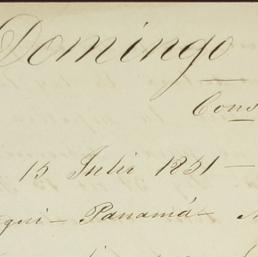 Domingo
Cons
15 Julio 1851 —
equi - Panamá -